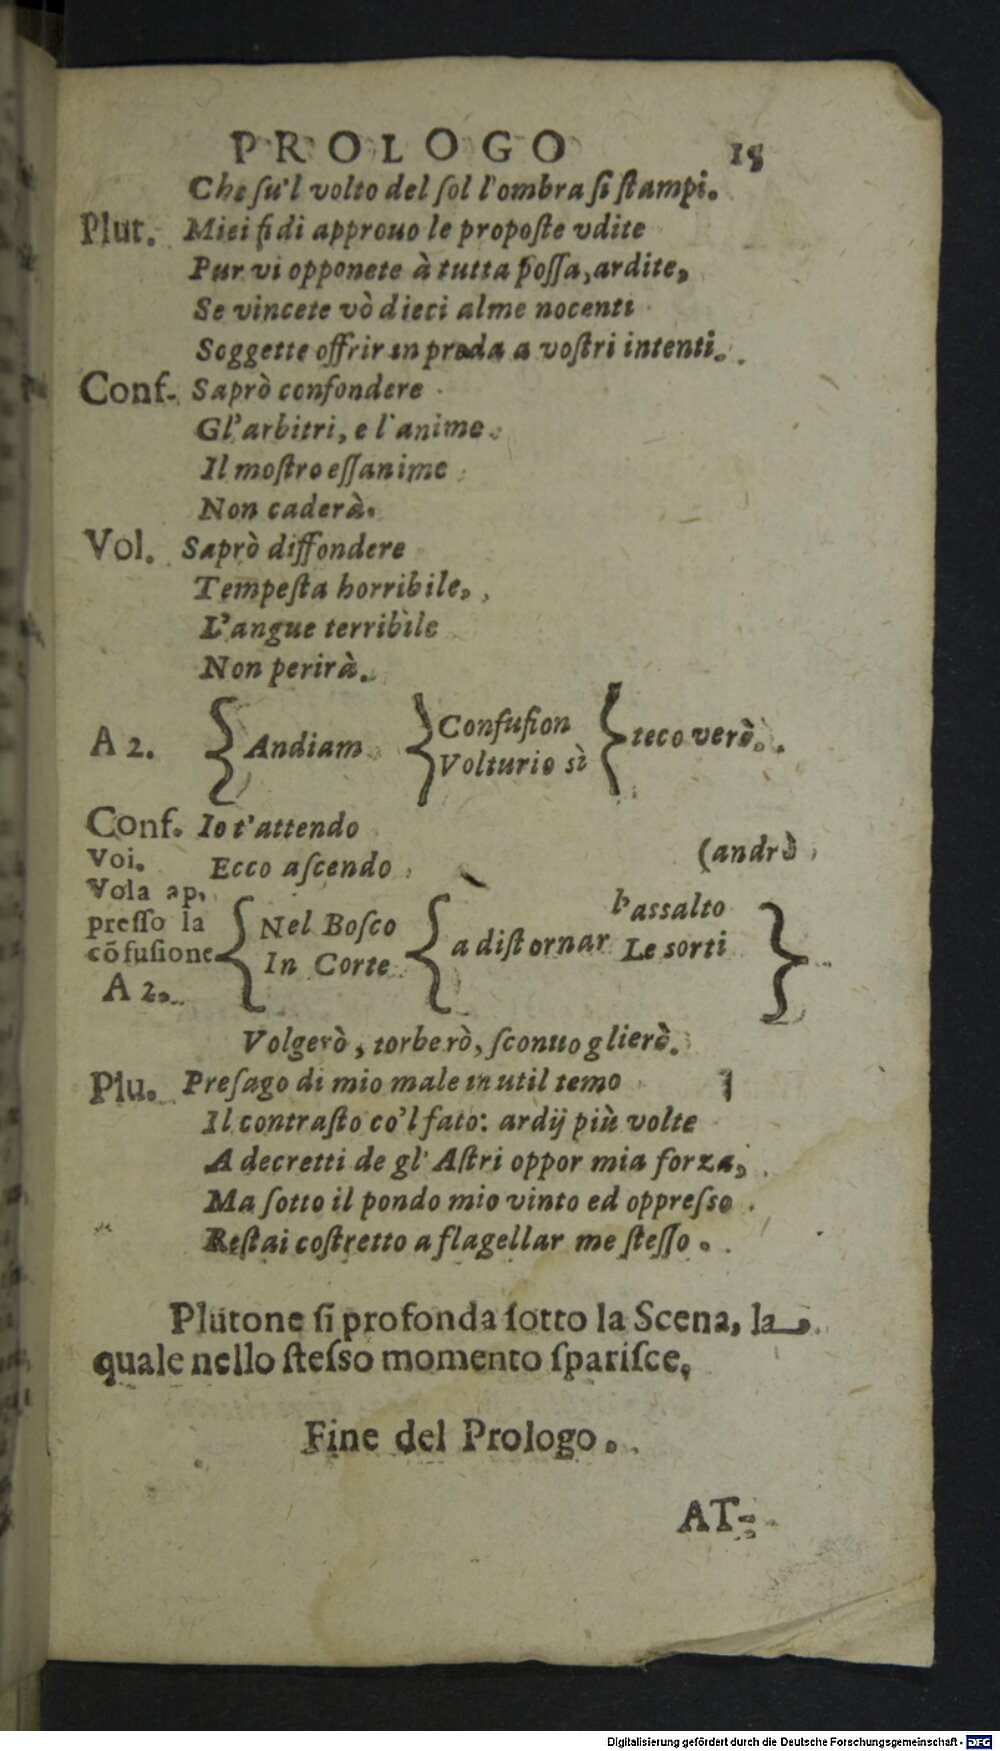 PROLOGO 15
Che ſu'l volto del ſol l'ombra ſi ſtampi.
Plut. Miei fidi approuo le propoſte vdite
Pur vi opponete à tutta poſſa, ardite,
Se vincete vò dieci alme nocenti
Soggette offrir in preda a voſtri intenti.
Conf. Saprò confondere
Gl'arbitri, e l'anime.
Il moſtro eſſanime
Non caderà.
Vol. Saprò diffondere
Tempeſta horribile,
L'angue terribile
Non perirà.
A 2. { Andiam } Confuſion
Volturio sì } teco verò.
Conf. Io t'attendo
Vol. Ecco aſcendo (andrò
Vola ap,
preſſo la
cõfuſione
A 2.
{ Nel Boſco
In Corte { a diſtornar l'aſſalto
Le sorti }
Volgerò, torberò, ſconuoglierò.
Plu. Preſago di mio male inutil temo
Il contraſto co'l fato: ardij più volte
A decretti de gl' Aſtri oppor mia forza,
Ma ſotto il pondo mio vinto ed oppreſſo
Reſtai coſtretto a flagellar me ſteſſo.
Plutone ſi profonda ſotto la Scena, la
quale nello ſteſso momento ſpariſce,
Fine del Prologo.
AT-
Digitalisierung gefördert durch die Deutsche Forschungsgemeinschaft - DFG